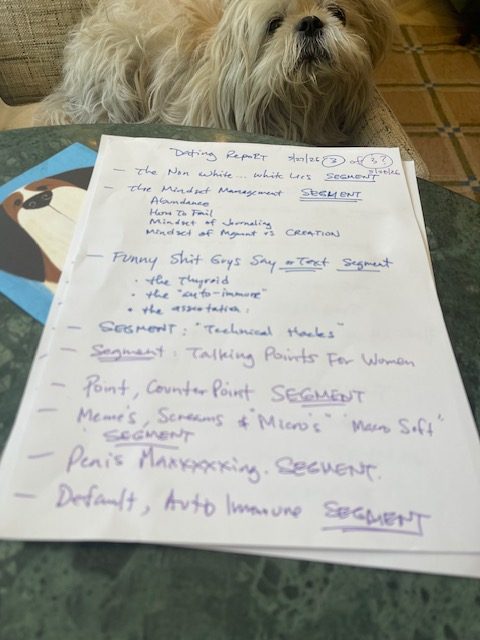 Dating Report 3/27/26 (2) of (3?)
3/28/26
— The Non White... White Lies SEGMENT
— The Mindset Management SEGMENT
Abundance
How To Fail
Mindset of Journaling
Mindset of Mgmnt vs CREATION
— Funny Shit Guys Say or Text Segment
• the Thyroid
• the "auto-immune"
• the :
— SEGMENT: "Technical Hacks"
— Segment: Talking Points For Women
— Point, Counter Point SEGMENT
— Meme's, Screams & "Micro's" "Macro Soft"
SEGMENT
— Penis Maxxxxxing. SEGMENT.
— Default, Auto Immune SEGMENT